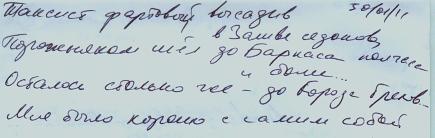 Таксист фартовый высадив 30/01/11
в Затвы седоков,
Порожняком шёл до Баркаса полчаса
и боли...
Осталось столько же - до города Греков -
Мне было хорошо с самим собой